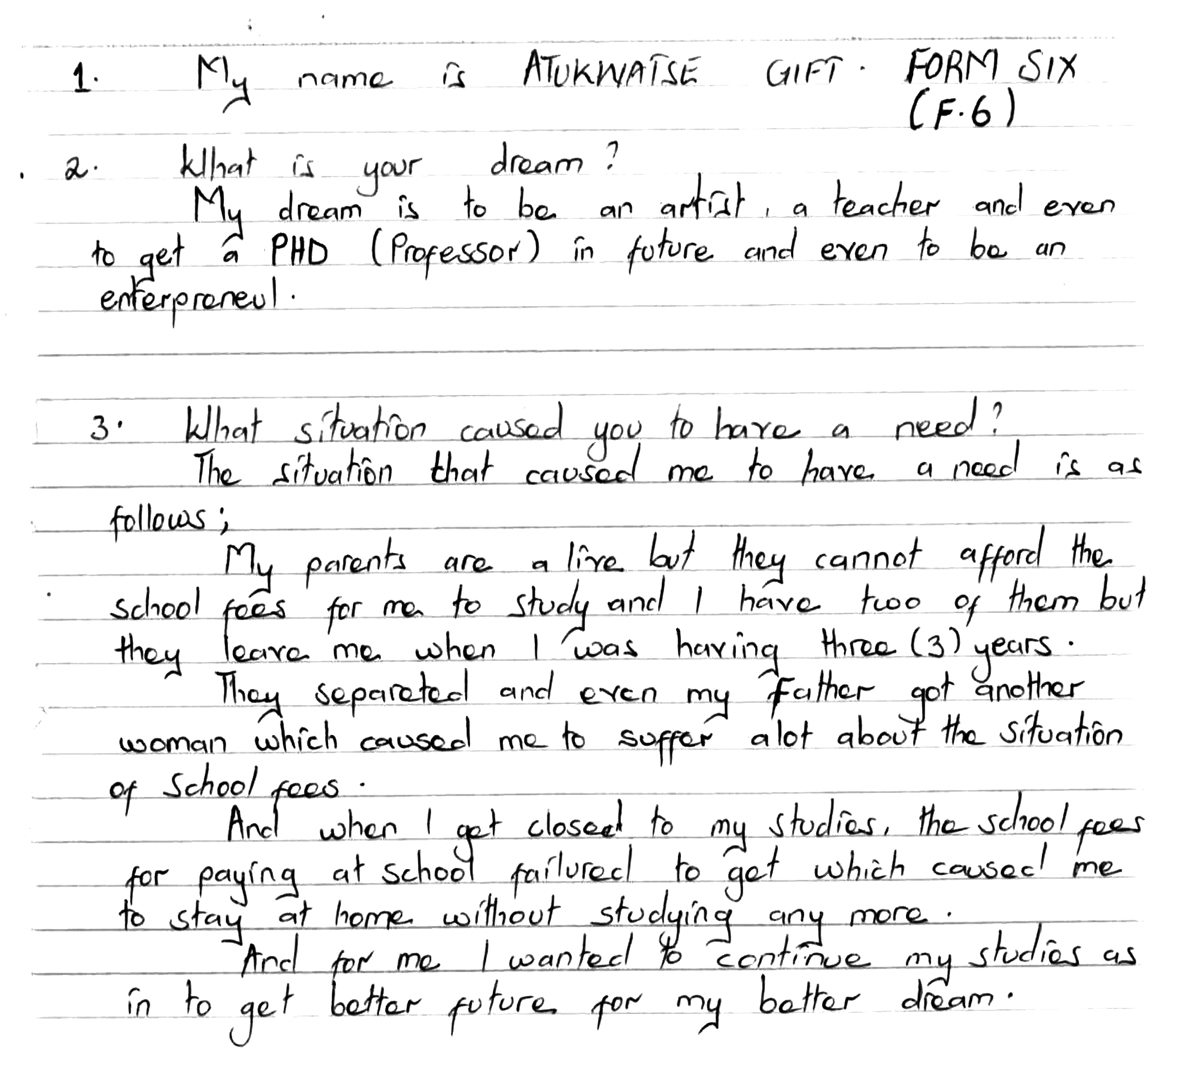 1. My name is ATUKWATSE GIFT. FORM SIX
(F.6)
2. What is your dream?
My dream is to be an artist, a teacher and even
to get a PHD (Professor) in future and even to be an
enterpreneul.
3. What situation caused you to have a need?
The situation that caused me to have a need is as
follows;
My parents are a live but they cannot afford the
school fees for me to study and I have two of them but
they leave me when I was having three (3) years.
They separated and even my Father got another
woman which caused me to suffer alot about the situation
of school fees.
And when I get closed to my studies, the school fees
for paying at school failured to get which caused me
to stay at home without studying any more.
And for me I wanted to continue my studies as
in to get better future for my better dream.